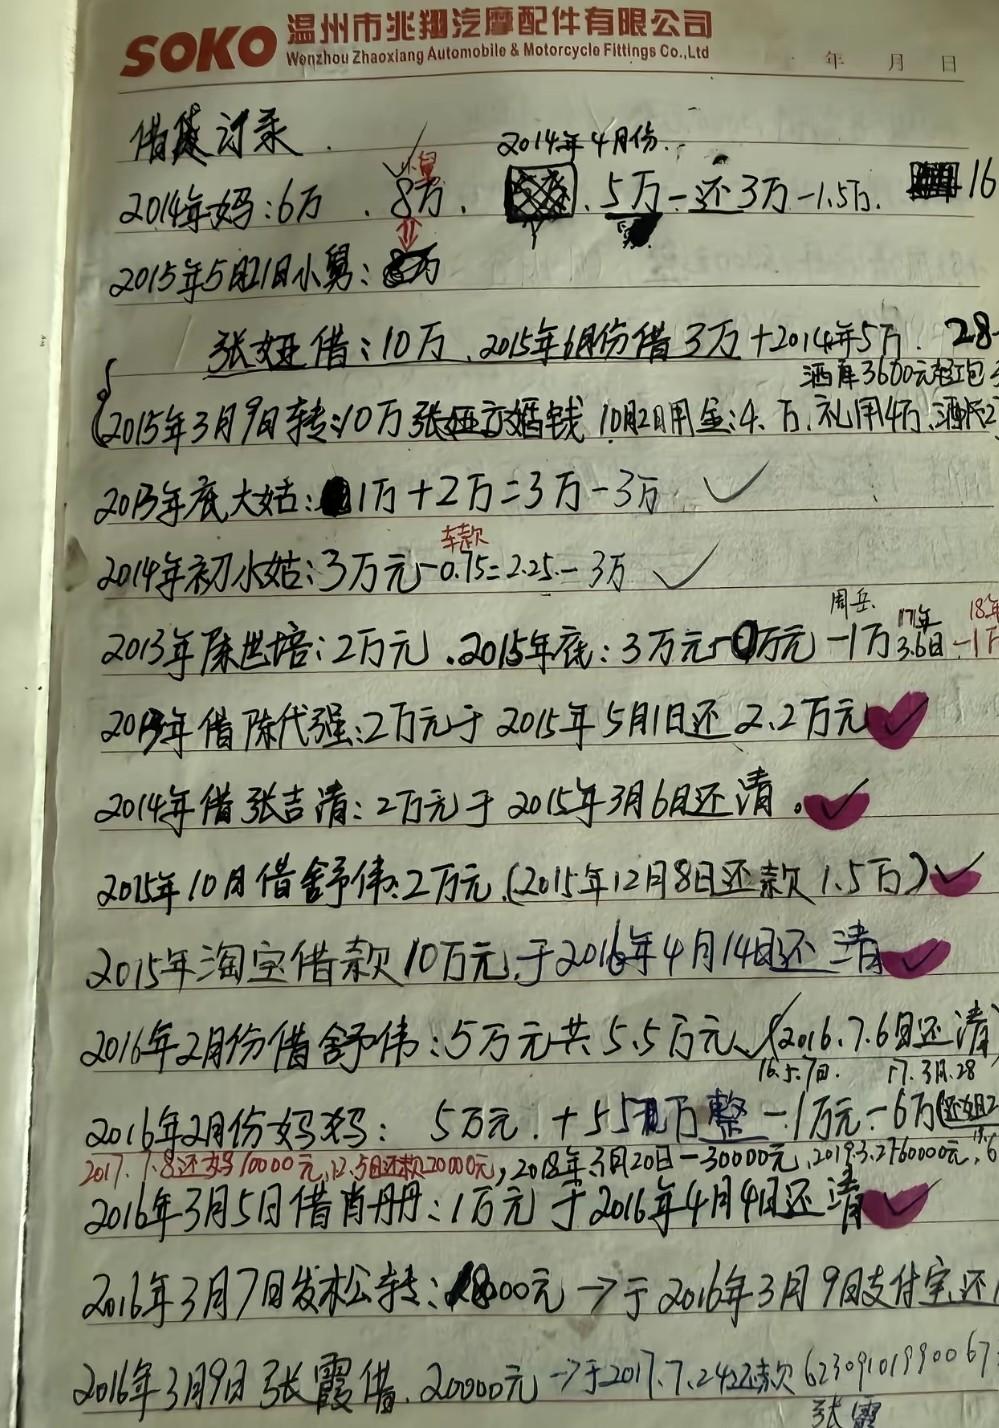 SOKO 温州市兆翔汽摩配件有限公司
Wenzhou Zhaoxiang Automobile & Motorcycle Fittings Co.,Ltd
年 月 日
借贷订录.
2014年4月份.
小舅
2014年妈:6万 . 8万 . . 5万-还3万-1.5万. 16
2015年5月21日小舅:
张娅借:10万、2015年6月份借3万+2014年5万. 28
酒席3600元红包
2015年3月9日转:10万张娅 婚钱 10月2日用金:4.万、礼用4万、酒
2013年底大姑: 1万+2万=3万-3万 ✓
车款
2014年初小姑:3万元-0.75=2.25.-3万 ✓
周岳. 17年 18年
2013年陈世培:2万元 .2015年底:3万元- 万元-1万 3.6日 -1万
年借陈代强:2万元于2015年5月1日还2.2万元 ✓
2014年借张吉清:2万元于2015年3月6日还清。✓
2015年10月借舒伟:2万元.(2015年12月8日还款1.5万) ✓
2015年淘宝借款10万元.于2016年4月14日还清 ✓
2016年2月份借舒伟:5万元共5.5万元、(2016.7.6日还清)
16.5.7日. 17.3月.28
2016年2月份妈妈: 5万元.+5 万整-1万元-6万(还姐2
还妈10000元,12.5日还款20000元,2018年3月20日-30000元、2019.3.27 60000元,6
2016年3月5日借肖丹丹:1万元于2016年4月4日还清 ✓
2016年3月7日发松转: 000元→于2016年3月9日支付宝还
2016年3月9日张霞借.20000元→于2017.7.24还款 62309101990067
张霞